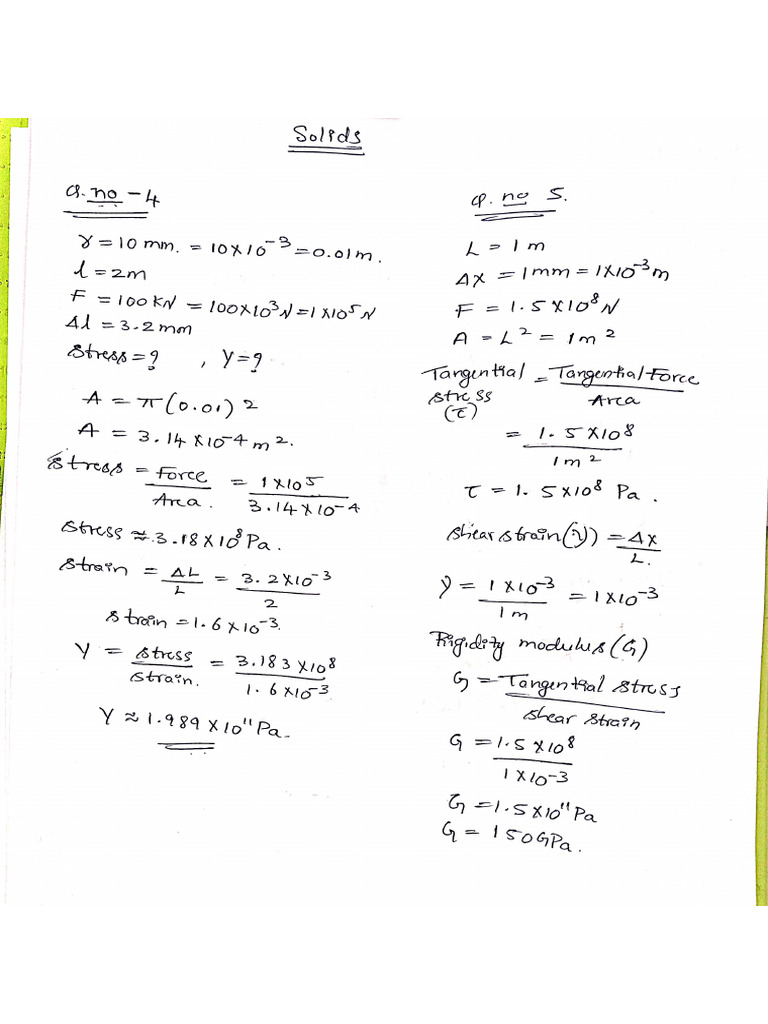 Solids
Q.no - 4
r = 10 mm. = 10×10⁻³ = 0.01m.
l = 2m
F = 100KN = 100×10³N = 1×10⁵N
Δl = 3.2mm
Stress = ? , Y = ?
A = π(0.01)2
A = 3.14×10⁻⁴m².
Stress = Force / Area. = 1×10⁵ / 3.14×10⁻⁴
Stress ≈ 3.18×10⁸Pa.
Strain = ΔL / L = 3.2×10⁻³ / 2
Strain = 1.6×10⁻³.
Y = Stress / Strain. = 3.183×10⁸ / 1.6×10⁻³
Y ≈ 1.989×10¹¹Pa.
Q.no 5.
L = 1m
Δx = 1mm = 1×10⁻³m
F = 1.5×10⁸N
A = L² = 1m²
Tangential Stress (τ) = Tangential Force / Area
= 1.5×10⁸ / 1m²
τ = 1.5×10⁸ Pa.
Shear strain(γ) = Δx / L.
γ = 1×10⁻³ / 1m = 1×10⁻³
Rigidity modulus(G)
G = Tangential Stress / Shear Strain
G = 1.5×10⁸ / 1×10⁻³
G = 1.5×10¹¹Pa
G = 150GPa.